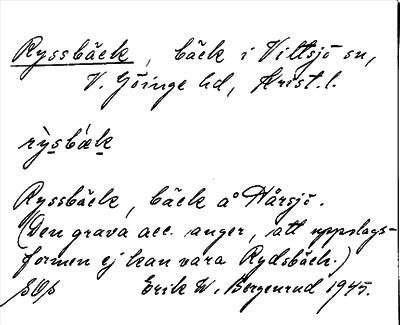 Ryssbäck, bäck i Vittsjö sn,
V. Göinge hd, Krist. l.
rỳsbæk
Ryssbäck, bäck å Hårsjö.
(Den grava acc. anger, att uppslags-
formen ej kan vara Rydsbäck.)
Erik W. Bergenrud 1945.